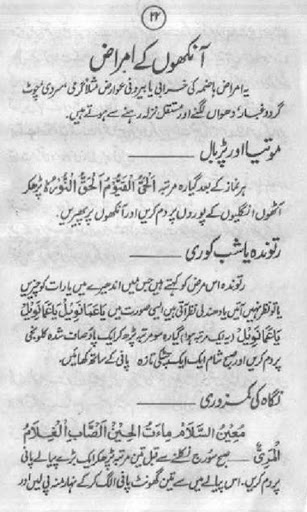 ۲۲
آنکھوں کے امراض
یہ امراض ہاضمہ کی خرابی یا بیرونی عوارض مثلاً گرمی سردی چوٹ
گردوغبار، دھواں لگنے اور مستقل نزلہ رہنے سے ہوتے ہیں۔
موتیا اور پڑبال
ہر نماز کے بعد گیارہ مرتبہ اَلْحَیُّ الْقَیُّوْمُ اَلْحَقُّ النُّوْرُ پڑھ کر
آٹھوں انگلیوں کے پوردوں پر دم کریں اور آنکھوں پر پھیریں۔
رتوندہ یا شب کوری
رتوندہ اس مرض کو کہتے ہیں جس میں اندھیرے میں یا رات کو چیزیں
یا تو نظر نہیں آتیں یا دھندلی نظر آتی ہیں ایسی صورت میں یَاعَمَانَوِیْلُ یَاعَمَانَوِیْلُ
یَاعَمَانَوِیْلُ (یہ ایک مرتبہ ہوا) گیارہ سو مرتبہ پڑھ کر ایک پاؤ صاف شدہ کلونجی
پر دم کریں اور صبح شام ایک ایک چٹکی تازہ پانی کے ساتھ کھائیں۔
نگاہ کی کمزوری
مَعِیْنُ السَّلَامُ مِاءَتُ الْحِیْنُ الصَّابُ الْغُلَامُ
الْمَرِیُّ صبح سورج نکلنے سے قبل تین مرتبہ پڑھ کر ایک بڑے پیالے پانی
پر دم کریں۔ اس پیالے میں سے تین گھونٹ پانی الگ کر کے نہار منہ پی لیں اور